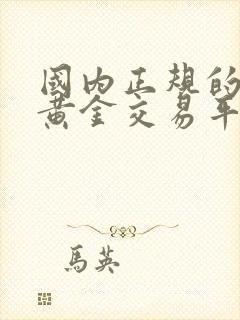 國內正規的
黃金交易平
馬英